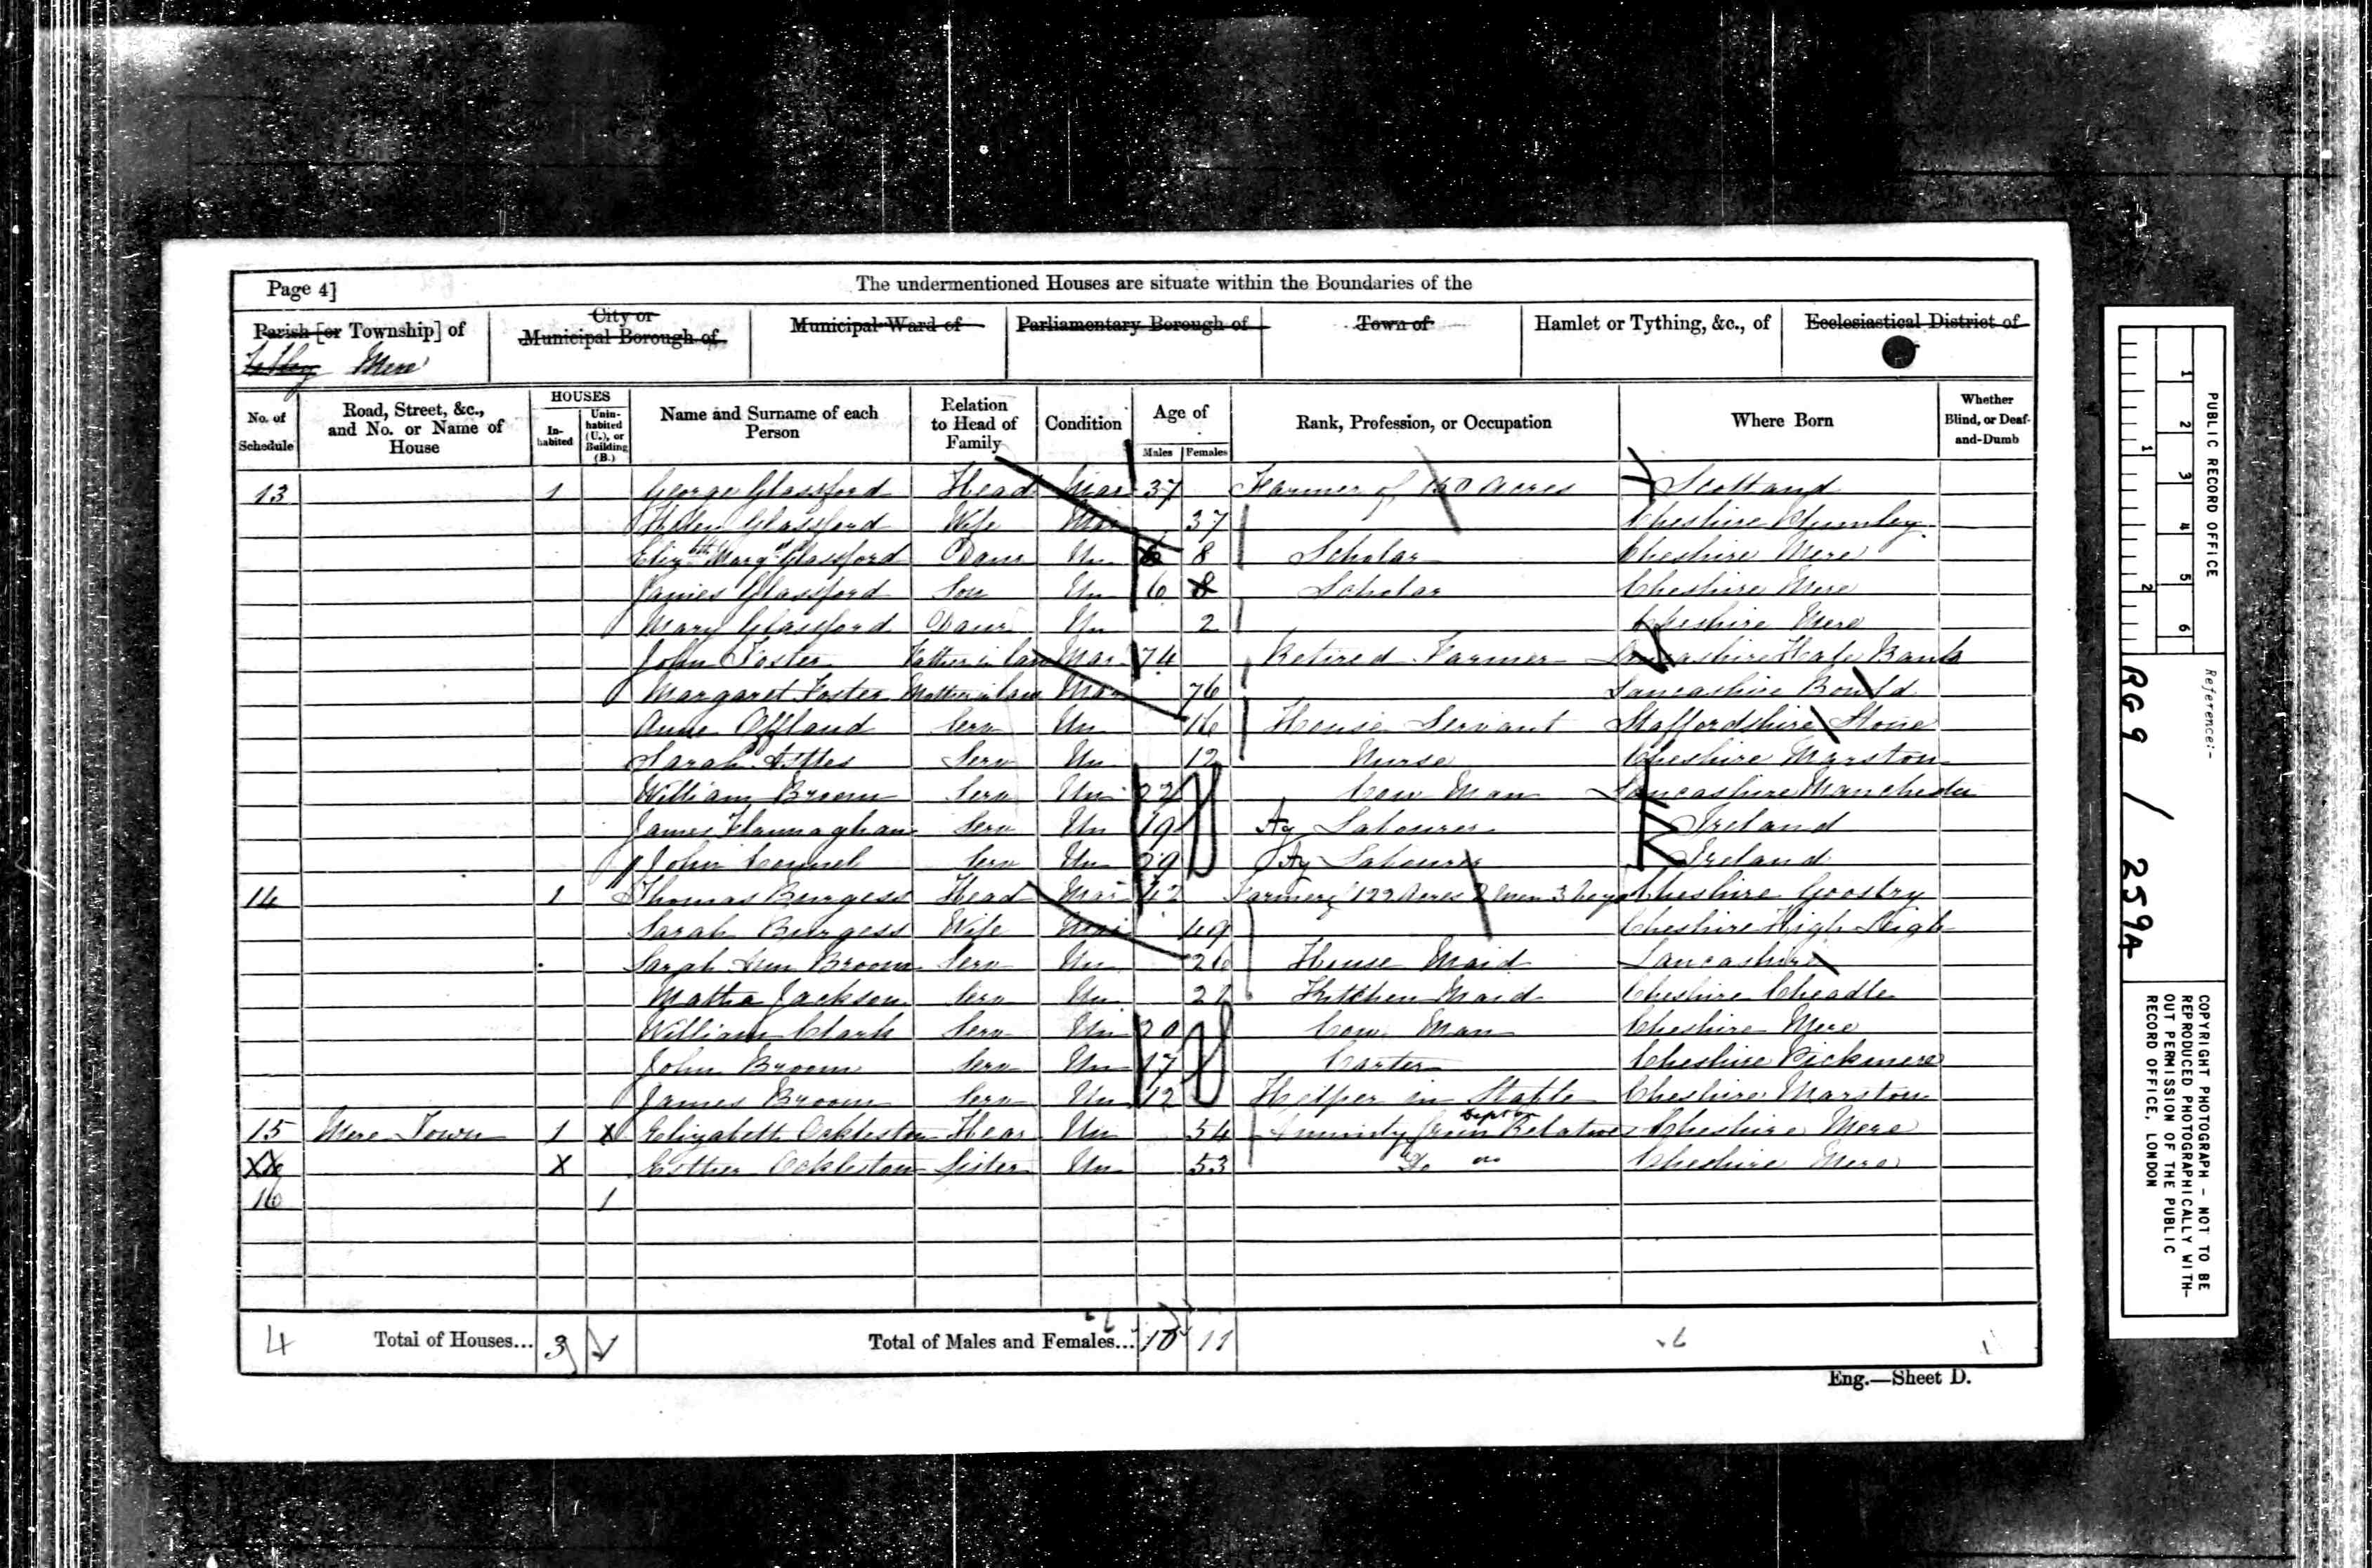 Page 4]
The undermentioned Houses are situate within the Boundaries of the
Parish [or Township] of
City or Municipal Borough of
Municipal Ward of
Parliamentary Borough of
Town of
Hamlet or Tything, &c., of
Ecclesiastical District of
Mere
No. of Schedule
Road, Street, &c., and No. or Name of House
HOUSES
Inhabited
Uninhabited (U.), or Building (B.)
Name and Surname of each Person
Relation to Head of Family
Condition
Age of
Males
Females
Rank, Profession, or Occupation
Where Born
Whether Blind, or Deaf-and-Dumb
13 1 George Glassford Head Mar 37 Farmer of 150 Acres Scotland
Helen Glassford Wife Mar 37 Cheshire Plumley
Elizbth Margt Glassford Daur Un 6 8 Scholar Cheshire Mere
James Glassford Son Un 6 8 Scholar Cheshire Mere
Mary Glassford Daur Un 2 Cheshire Mere
John Foster Father in law Mar 74 Retired Farmer Lancashire Hale Bank
Margaret Foster Mother in law Mar 76 Lancashire Bould
Anne Offland Serv Un 16 House Servant Staffordshire Stone
Sarah Serv Un 12 Nurse Cheshire Marston
William Broom Serv Un 22 Cow Man Lancashire Manchester
James Flannaghan Serv Un 19 Ag Labourer Ireland
John Serv Un 29 Ag Labourer Ireland
14 1 Thomas Burgess Head Mar 42 Farmer of 122 Acres 2 Men 3 boys Cheshire Goostry
Sarah Burgess Wife Mar 49 Cheshire High Leigh
Sarah Ann Broom Serv Un 26 House Maid Lancashire
Martha Jackson Serv Un 21 Kitchen Maid Cheshire Cheadle
William Clark Serv Un 20 Cow Man Cheshire Mere
John Broom Serv Un 17 Carter Cheshire Pickmere
James Broom Serv Un 12 Helper in Stable Cheshire Marston
15 Mere Town 1 X Elizabeth Oakleston Head Un 54 Annuity from Relatives Cheshire Mere
X Esther Oakleston Sister Un 53 Do Do Cheshire Mere
16 1
4 Total of Houses... 3 1 Total of Males and Females... 10 11
Eng.—Sheet D.
PUBLIC RECORD OFFICE
1 2 3 4 5 6
1 2
Reference:-
RG 9 / 2594
COPYRIGHT PHOTOGRAPH - NOT TO BE
REPRODUCED PHOTOGRAPHICALLY WITH-
OUT PERMISSION OF THE PUBLIC
RECORD OFFICE, LONDON